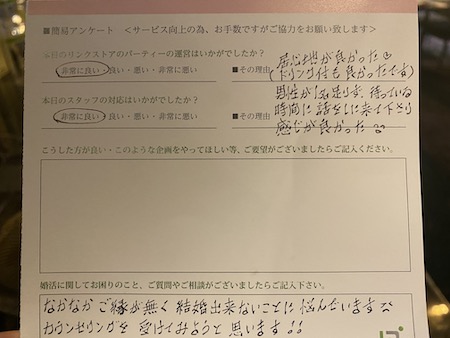 ■簡易アンケート <サービス向上の為、お手数ですがご協力をお願い致します>
本日のリンクストアのパーティーの運営はいかがでしたか？
非常に良い・良い・悪い・非常に悪い ■その理由
居心地が良かった
(ドリンク付も良かったです)
本日のスタッフの対応はいかがでしたか？
非常に良い・良い・悪い・非常に悪い ■その理由
男性が1名足りず、待っている
時間に話をしに来て下さり
感じが良かった
こうした方が良い・このような企画をやってほしい等、ご要望がございましたらご記入ください。
婚活に関してお困りのこと、ご質問やご相談がございましたらご記入下さい。
なかなかご縁が無く結婚出来ないことに悩んでいます
カウンセリングを受けてみようと思います